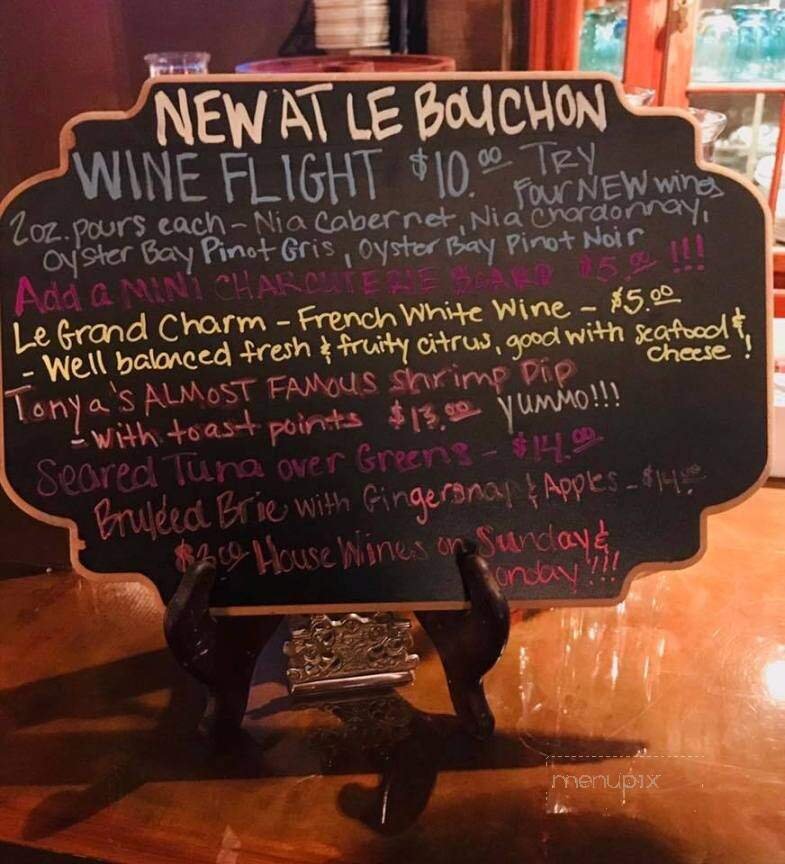 NEW AT LE BOUCHON
WINE FLIGHT $10.00 TRY
FOUR NEW wines
2oz. pours each - Nia Cabernet, Nia Chardonnay,
Oyster Bay Pinot Gris, Oyster Bay Pinot Noir
Add a MINI CHARCUTERIE BOARD $5.00 !!!
Le Grand Charm - French White Wine - $5.00
- Well balanced fresh & fruity citrus, good with seafood &
cheese!
Tonya's ALMOST FAMOUS Shrimp Dip
- with toast points $13.00 YUMMO!!!
Seared Tuna over Greens - $14.00
Bruleed Brie with Gingersnap & Apples - $14.00
$3.00 House Wines on Sunday &
onday!!!
menupix